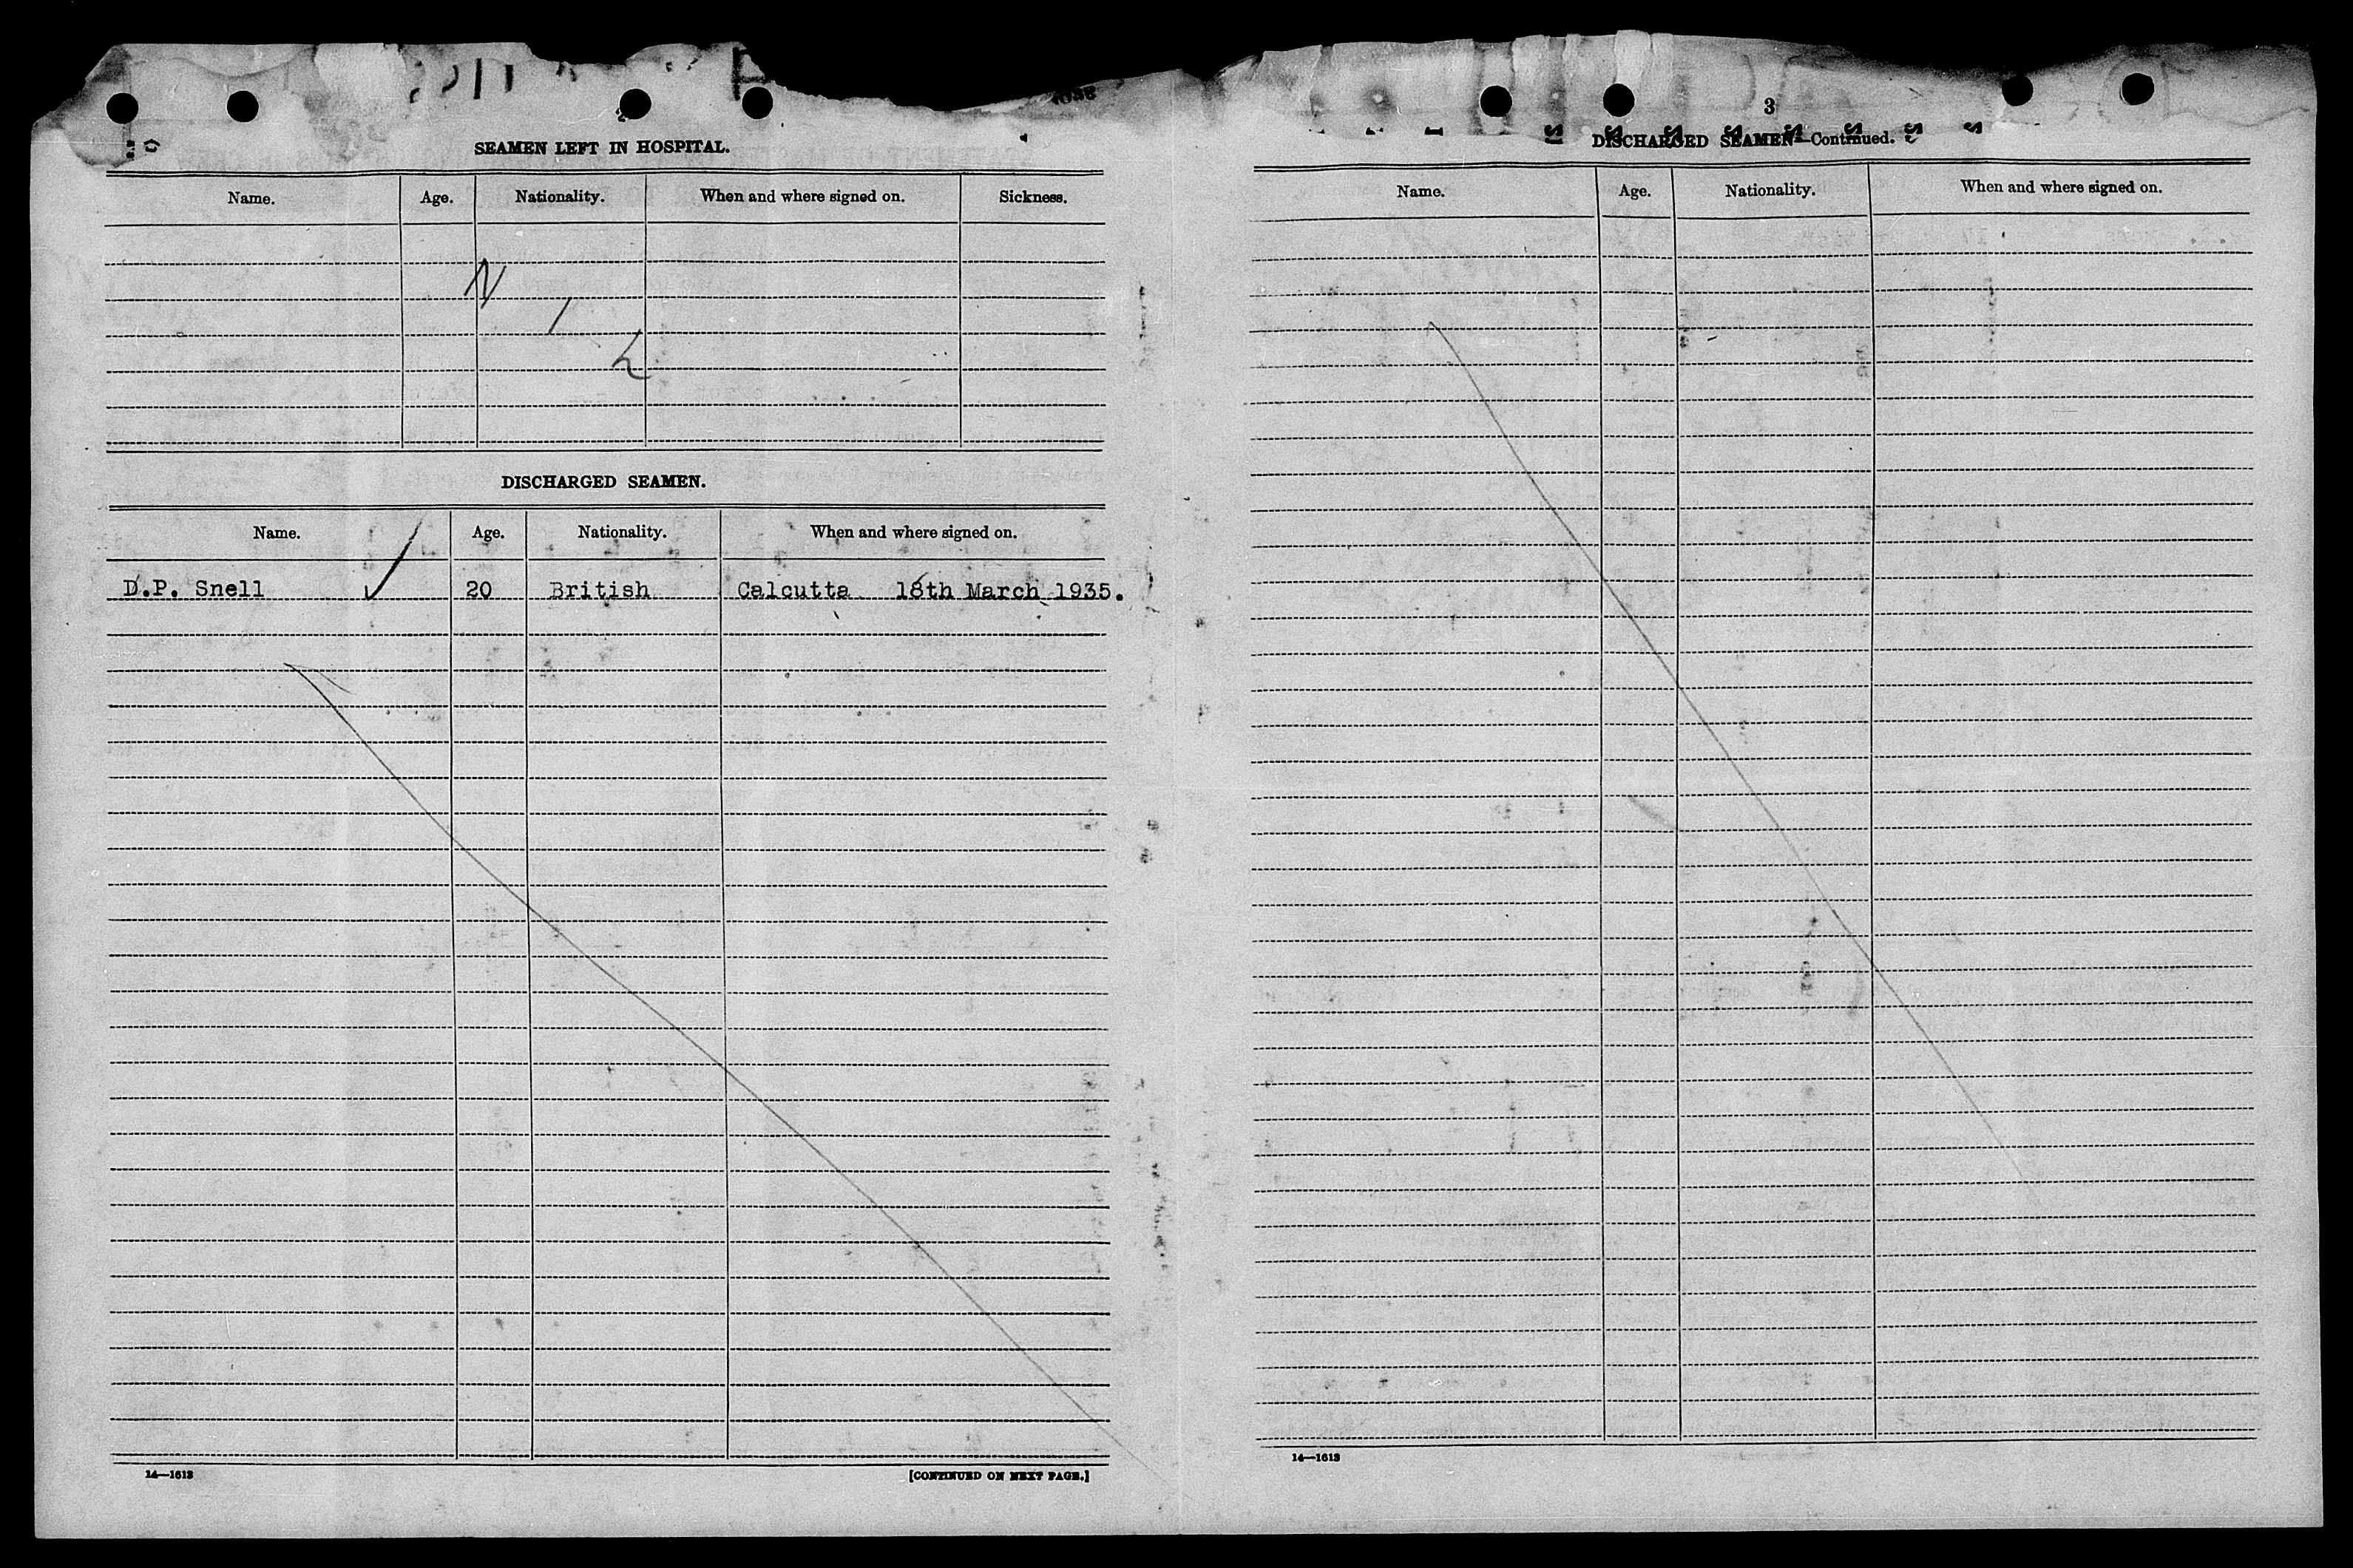 SEAMEN LEFT IN HOSPITAL.
Name. Age. Nationality. When and where signed on. Sickness.
N I L
DISCHARGED SEAMEN.
Name. Age. Nationality. When and where signed on.
D.P. Snell 20 British Calcutta 18th March 1935.
14—1613
[CONTINUED ON NEXT PAGE.]
3
DISCHARGED SEAMEN—Continued.
Name. Age. Nationality. When and where signed on.
14—1613